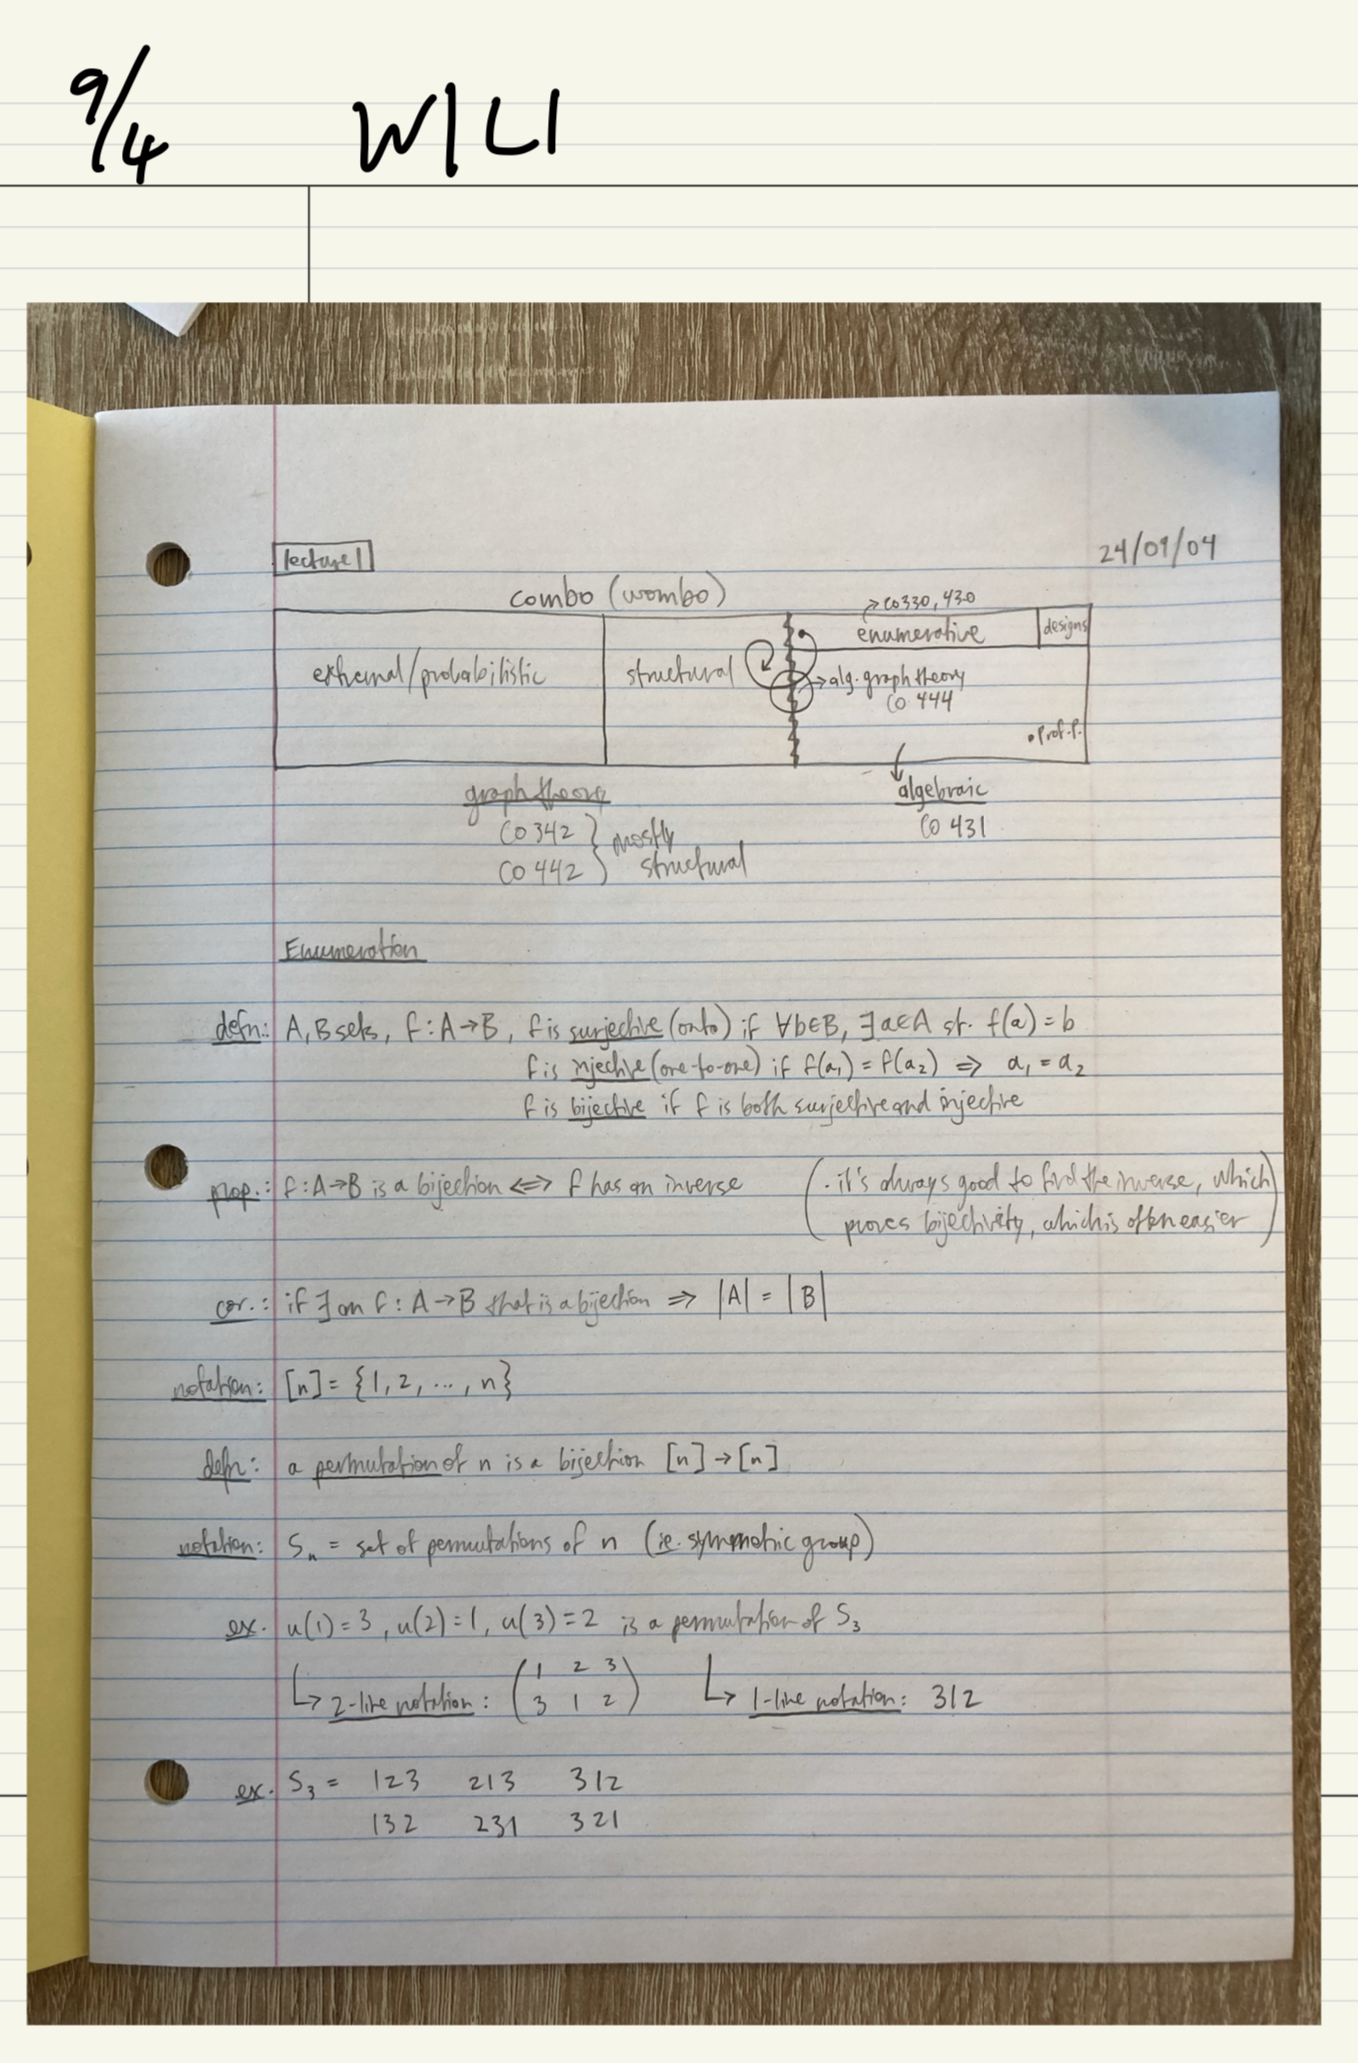 9/4 W1L1
lecture 1
24/09/04
combo (wombo)
→ CO330, 430
extremal/probabilistic
structural
enumerative
designs
→ alg. graph theory
CO 444
• Prof. P.
graph theory
CO 342
CO 442
} mostly
structural
algebraic
CO 431
Enumeration
defn.: A, B sets, f: A→B, f is surjective (onto) if ∀b∈B, ∃a∈A st. f(a) = b
f is injective (one-to-one) if f(a₁) = f(a₂) ⇒ a₁ = a₂
f is bijective if f is both surjective and injective
prop.: f: A→B is a bijection ⇔ f has an inverse
(· it's always good to find the inverse, which
proves bijectivity, which is often easier)
cor.: if ∃ an f: A→B that is a bijection ⇒ |A| = |B|
notation: [n] = {1, 2, ..., n}
defn: a permutation of n is a bijection [n]→[n]
notation: Sₙ = set of permutations of n (ie. symmetric group)
ex. u(1)=3, u(2)=1, u(3)=2 is a permutation of S₃
↳ 2-line notation: (1 2 3
3 1 2)
↳ 1-line notation: 312
ex. S₃ = 123 213 312
132 231 321